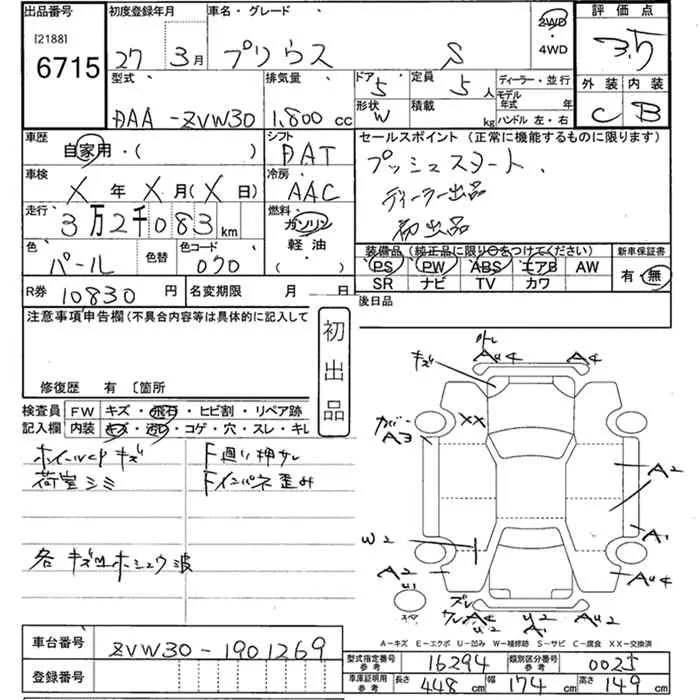 出品番号
[2188]
6715
初度登録年月
27年3月
車名・グレード
プリウス S
2WD
・4WD
評価点
3.5
外装 内装
C B
型式
DAA-ZVW30
排気量
1,800cc
ドア 5
定員 5人
形状 W
積載 kg
ディーラー・並行
モデル年式 年
ハンドル 左・右
車歴
自家用・( )
シフト
DAT
車検
X年X月(X日)
冷房
AAC
走行
3万2千083km
燃料
ガソリン
軽・油
・( )
色
パール
色替
色コード
070
R券 10830円
名変期限 月 日
セールスポイント(正常に機能するものに限ります)
プッシュスタート、
ディーラー出品
初出品
装備品(純正品に限り○をつけてください)
PS PW ABS エアB AW
SR ナビ TV カワ
新車保証書
有・無
後日品
注意事項申告欄(不具合内容等は具体的に記入して
修復歴 有 〔箇所
初出品
検査員記入欄
FW キズ・飛石・ヒビ割・リペア跡
内装 キズ・汚れ・コゲ・穴・スレ・キレ
ホイールcapキズ
荷室シミ
F廻り押し
Fインパネ歪み
各キズ凹ホシュウ波
キズ
A4
A4
XX
カバー
A3
A2
W2
A1
A2
U1
A4
スペア
ズレ
ワレ A4
U2
U2
A1
AU2
A-キズ E-エクボ U-凹み W-補修跡 S-サビ C-腐食 XX-交換済
車台番号
ZVW30-1901269
登録番号
型式指定番号 参考
16294
類別区分番号 参考
0025
車庫証明用 参考
長さ 448cm
幅 174cm
高さ 149cm